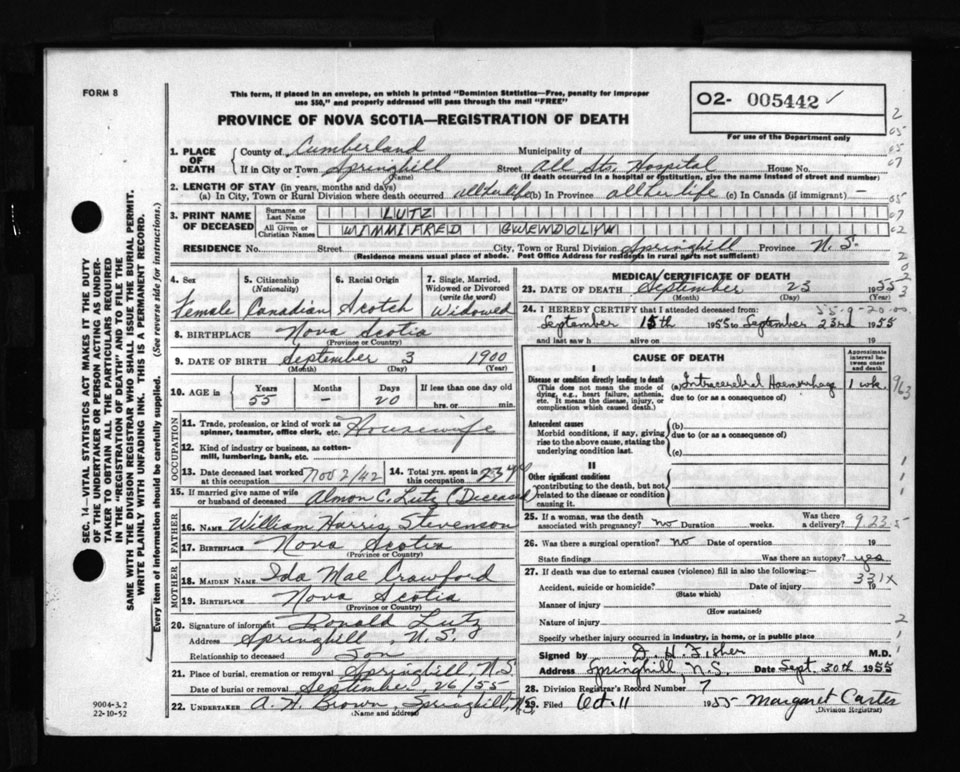 FORM 8
This form, if placed in an envelope, on which is printed "Dominion Statistics—Free, penalty for improper
use $50," and properly addressed will pass through the mail "FREE"
O2- 005442 ✓
PROVINCE OF NOVA SCOTIA—REGISTRATION OF DEATH
For use of the Department only
1. PLACE OF DEATH
County of Cumberland Municipality of
If in City or Town Springhill Street All Sts. Hospital House No.
(Name) (If death occurred in a hospital or institution, give the name instead of street and number)
2. LENGTH OF STAY (in years, months and days)
(a) In City, Town or Rural Division where death occurred all her life (b) In Province all her life (c) In Canada (if immigrant) —
3. PRINT NAME OF DECEASED
Surname or Last Name LUTZ
All Given or Christian Names WIMMIFRED GWENDOLYN
RESIDENCE No. Street City, Town or Rural Division Springhill Province N.S.
(Residence means usual place of abode. Post Office Address for residents in rural parts not sufficient)
4. Sex Female
5. Citizenship (Nationality) Canadian
6. Racial Origin Scotch
7. Single, Married, Widowed or Divorced (write the word) Widowed
8. BIRTHPLACE Nova Scotia
(Province or Country)
9. DATE OF BIRTH September 3 1900
(Month) (Day) (Year)
10. AGE in Years 55 Months — Days 20 If less than one day old hrs. or min.
OCCUPATION
11. Trade, profession, or kind of work as spinner, teamster, office clerk, etc. Housewife
12. Kind of industry or business, as cotton-mill, lumbering, bank, etc.
13. Date deceased last worked at this occupation Nov 2/42
14. Total yrs. spent in this occupation 23 yrs
15. If married give name of wife or husband of deceased Almon C. Lutz (Deceased)
FATHER
16. NAME William Harris Stevenson
17. BIRTHPLACE Nova Scotia
(Province or Country)
MOTHER
18. MAIDEN NAME Ida Mae Crawford
19. BIRTHPLACE Nova Scotia
(Province or Country)
20. Signature of informant Donald Lutz
Address Springhill, N.S.
Relationship to deceased Son
21. Place of burial, cremation or removal Springhill, N.S.
Date of burial or removal September 26/55
22. UNDERTAKER A. H. Brown, Springhill, N.S.
(Name and address)
MEDICAL CERTIFICATE OF DEATH
23. DATE OF DEATH September 23 1955
(Month) (Day) (Year)
24. I HEREBY CERTIFY that I attended deceased from: 55-9-20-00
September 15th 1955 to September 23rd 1955
and last saw h alive on 19
CAUSE OF DEATH
Approximate interval between onset and death
I
Disease or condition directly leading to death
(This does not mean the mode of dying, e.g., heart failure, asthenia, etc. It means the disease, injury, or complication which caused death.)
(a) Intracerebral Haemorrhage 1 wk.
due to (or as a consequence of)
Antecedent causes
Morbid conditions, if any, giving rise to the above cause, stating the underlying condition last.
(b)
due to (or as a consequence of)
(c)
II
Other significant conditions
contributing to the death, but not related to the disease or condition causing it.
25. If a woman, was the death associated with pregnancy? No Duration weeks. Was there a delivery?
26. Was there a surgical operation? No Date of operation 19
State findings Was there an autopsy? yes
27. If death was due to external causes (violence) fill in also the following:—
331X
Accident, suicide or homicide? Date of injury 19
(State which)
Manner of injury
(How sustained)
Nature of injury
Specify whether injury occurred in industry, in home, or in public place
Signed by D. H. Fisher M.D.
Address Springhill, N.S. Date Sept. 30th 1955
28. Division Registrar's Record Number 7
29. Filed Oct. 11 1955 Margaret Carter
(Division Registrar)
SEC. 14—VITAL STATISTICS ACT MAKES IT THE DUTY
OF THE UNDERTAKER OR PERSON ACTING AS UNDER-
TAKER TO OBTAIN ALL THE PARTICULARS REQUIRED
IN THE "REGISTRATION OF DEATH" AND TO FILE THE
SAME WITH THE DIVISION REGISTRAR WHO SHALL ISSUE THE BURIAL PERMIT.
WRITE PLAINLY WITH UNFADING INK. THIS IS A PERMANENT RECORD.
Every item of information should be carefully supplied. (See reverse side for instructions.)
9004-3.2
22-10-52